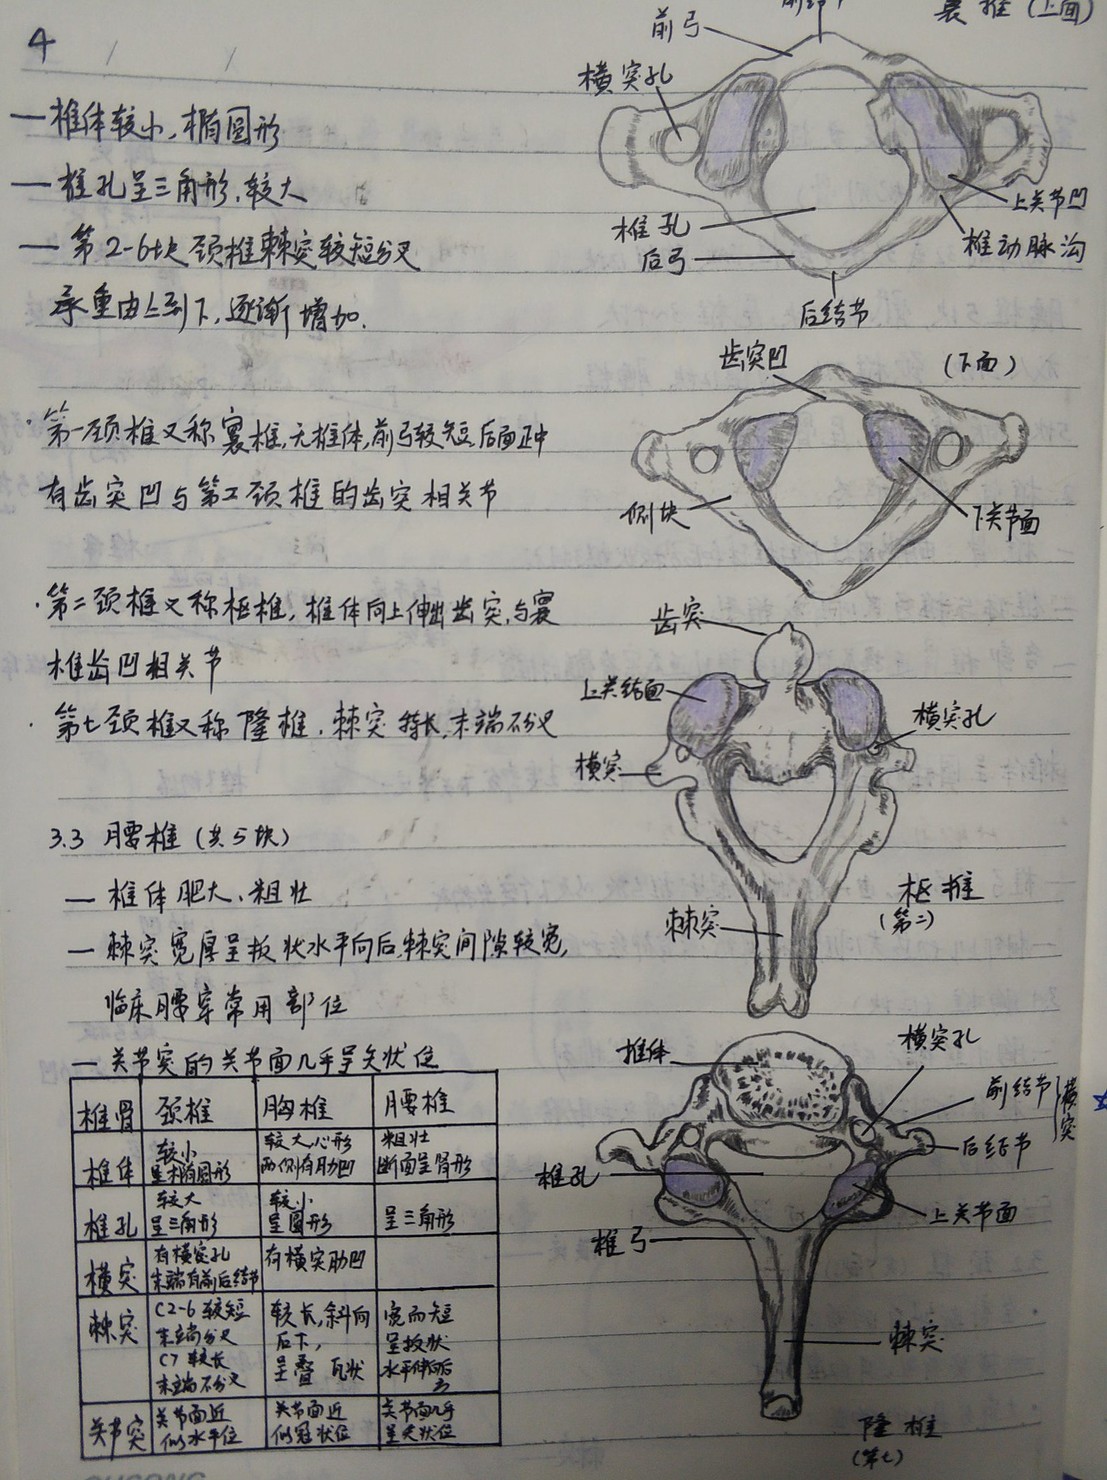 4 / /
一 椎体较小,椭圆形
一 椎孔呈三角形,较大
一 第2-6块颈椎棘突较短分叉
承重由上到下,逐渐增加.
·第一颈椎又称寰椎,无椎体,前弓较短,后面正中
有齿突凹与第二颈椎的齿突相关节
·第二颈椎又称枢椎,椎体向上伸出齿突,与寰
椎齿凹相关节
·第七颈椎又称隆椎.棘突特长,末端不分叉
3.3 腰椎(共5块)
一 椎体肥大、粗壮
一 棘突宽厚呈板状水平向后,棘突间隙较宽,
临床腰穿常用部位
一 关节突的关节面几乎呈矢状位
椎骨 颈椎 胸椎 腰椎
椎体 较小 呈椭圆形 较大,心形 两侧有肋凹 粗壮 断面呈肾形
椎孔 较大 呈三角形 较小 呈圆形 呈三角形
横突 有横突孔 末端有前后结节 有横突肋凹
棘突 C2-6较短 末端分叉 C7较长 末端不分叉 较长,斜向 后下, 呈叠瓦状 宽而短 呈板状 水平伸向后方
关节突 关节面近 似水平位 关节面近 似冠状位 关节面几乎 呈矢状位
寰椎(上面)
前弓
横突孔
上关节凹
椎孔
椎动脉沟
后弓
后结节
齿突凹
(下面)
侧块
下关节面
齿突
上关节面
横突孔
横突
枢椎
(第二)
棘突
椎体
横突孔
前结节
横突
后结节
椎孔
上关节面
椎弓
棘突
隆椎
(第七)